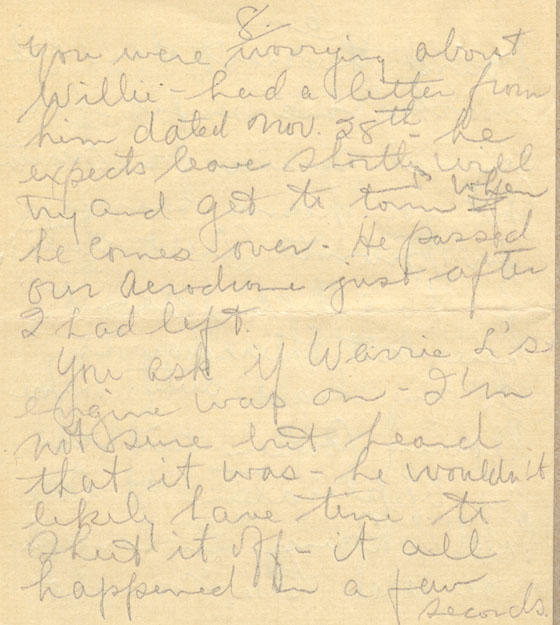 8.
You were worrying about
Willie - had a letter from
him dated Nov. 28th - he
expects leave shortly will
try and get to town when
he comes over - He passed
our Aerodrome just after
I had left.
You ask if Warrie L's
engine was on - I'm
not sure but heard
that it was - he wouldn't
likely have time to
shut it off - it all
happened in a few
seconds.